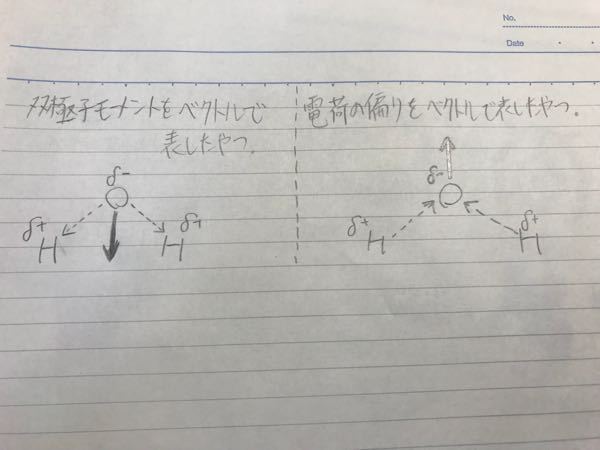 No.
Date
双極子モーメントをベクトルで
表したやつ.
δ-
δ+
H
H
δ+
電荷の偏りをベクトルで表したやつ.
δ-
δ+
H
H
δ+